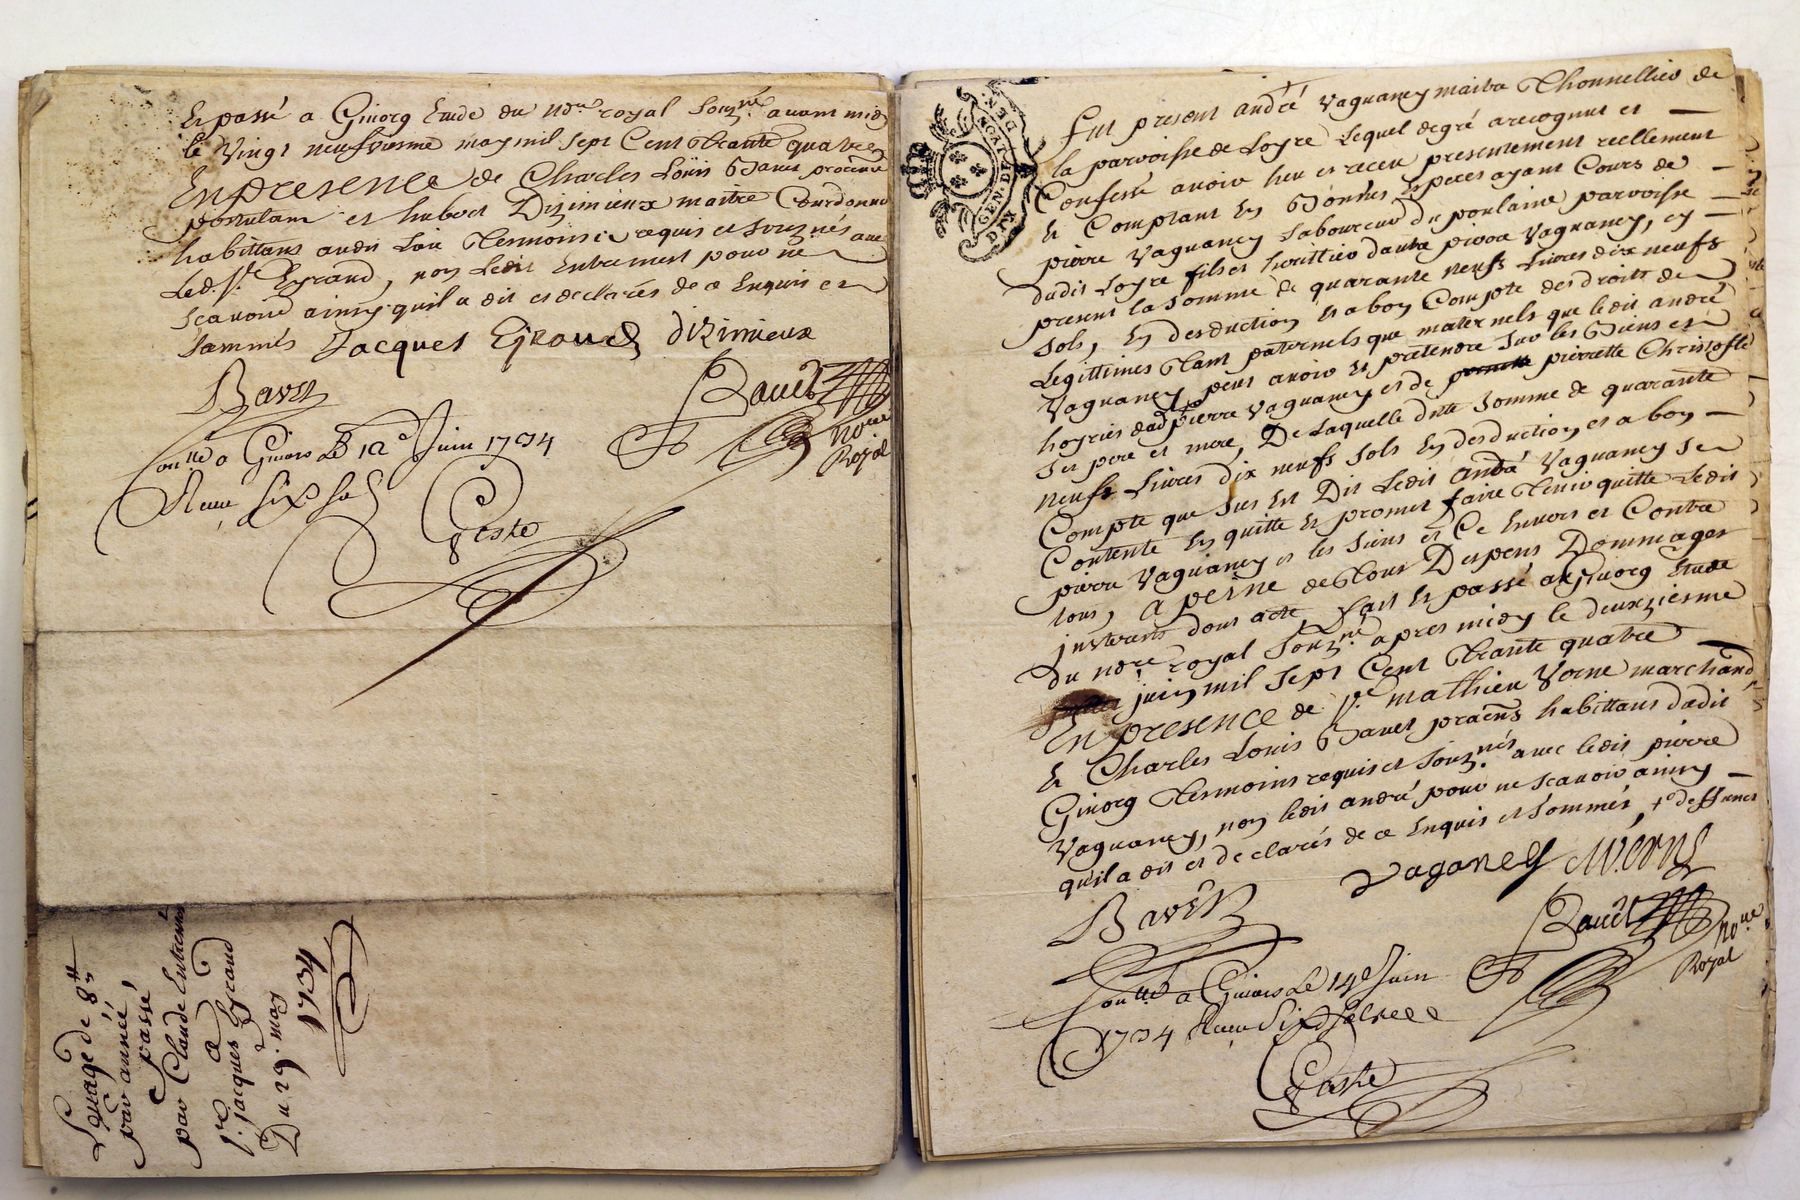 Et passé a Givorq Etude du No.re royal Souz.né avant midy
le Vingt neufviesme may mil sept Cent Trante quatre
En presence de Charles Loüis Bavet procureur
postulant et hubert Dizimieux maitre Cordonnie
habittans audit Lieu Tesmoins requis et Souz.nés avec
Led. S.r Eyraud, non Ledit Entremont pour ne
Scavoir ainsy quil a dit et declarés de ce Enquis et
Sammés Jacques Ejraud dizimieux
Bavet
Bauet
No.re
Royal
Con.llé a Givors Le 12e Juin 1734
Receu Six Sols
Coste
Loüage de 8
par année
passé
par Claude Entremont
a
S.r jacques Eyraud
Du 29. may
1734
GEN. DE LYON
DIX DEN
Fut present andré Vaganey maitre Thonnellier de
la parroisse de Loyre Lequel degré a recognut et
Confessé avoir heu et receu presentement reellement
et Comptant En Bonnes Especes ayant Cours de
pierre Vaganey Laboureur du poulaine parroisse
dudit Loyre fils et heritier dautre pierre Vaganey, cy
present la Somme de quarante neufs Livres dix neufs
Sols, En desduction et a bon Compte des droits de
Legittimes Tant paternels que maternels que ledit andré
Vaganey peut avoir et pretendre Sur les Biens et
hoyries dud. pierre Vaganey et de pierrette Christofle
Ses pere et mere, De Laquelle dite Somme de quarante
neufs Livres dix neufs Sols En desduction et a bon
Compte que Sus Est Dit Ledit andré Vaganey Se
Contente En quitte et promet faire Tenir quitte Ledit
pierre Vaganey et les Siens et Ce Envers et Contre
tous, a peine de Tous Despens Dommages
interests dont acte, Fait et passé a Givorq Etude
du No.re royal Souz.né apres midy le deuxziesme
juin mil Sept Cent Trante quatre
En presence de S.r mathieu Verne marchand
et Charles Louis Bavet praticiens habittans dudit
Givorq Tesmoins requis et Souz.nés avec ledit pierre
Vaganey, non ledit andré pour ne Scavoir ainsy
quil a dit et declarés de ce Enquis et Sommés, + deffunct
Vaganey M Vern
Bavet
Bauet
No.re
Royal
Con.llé a Givors Le 14e Juin
1734 Receu Six Sols
Coste